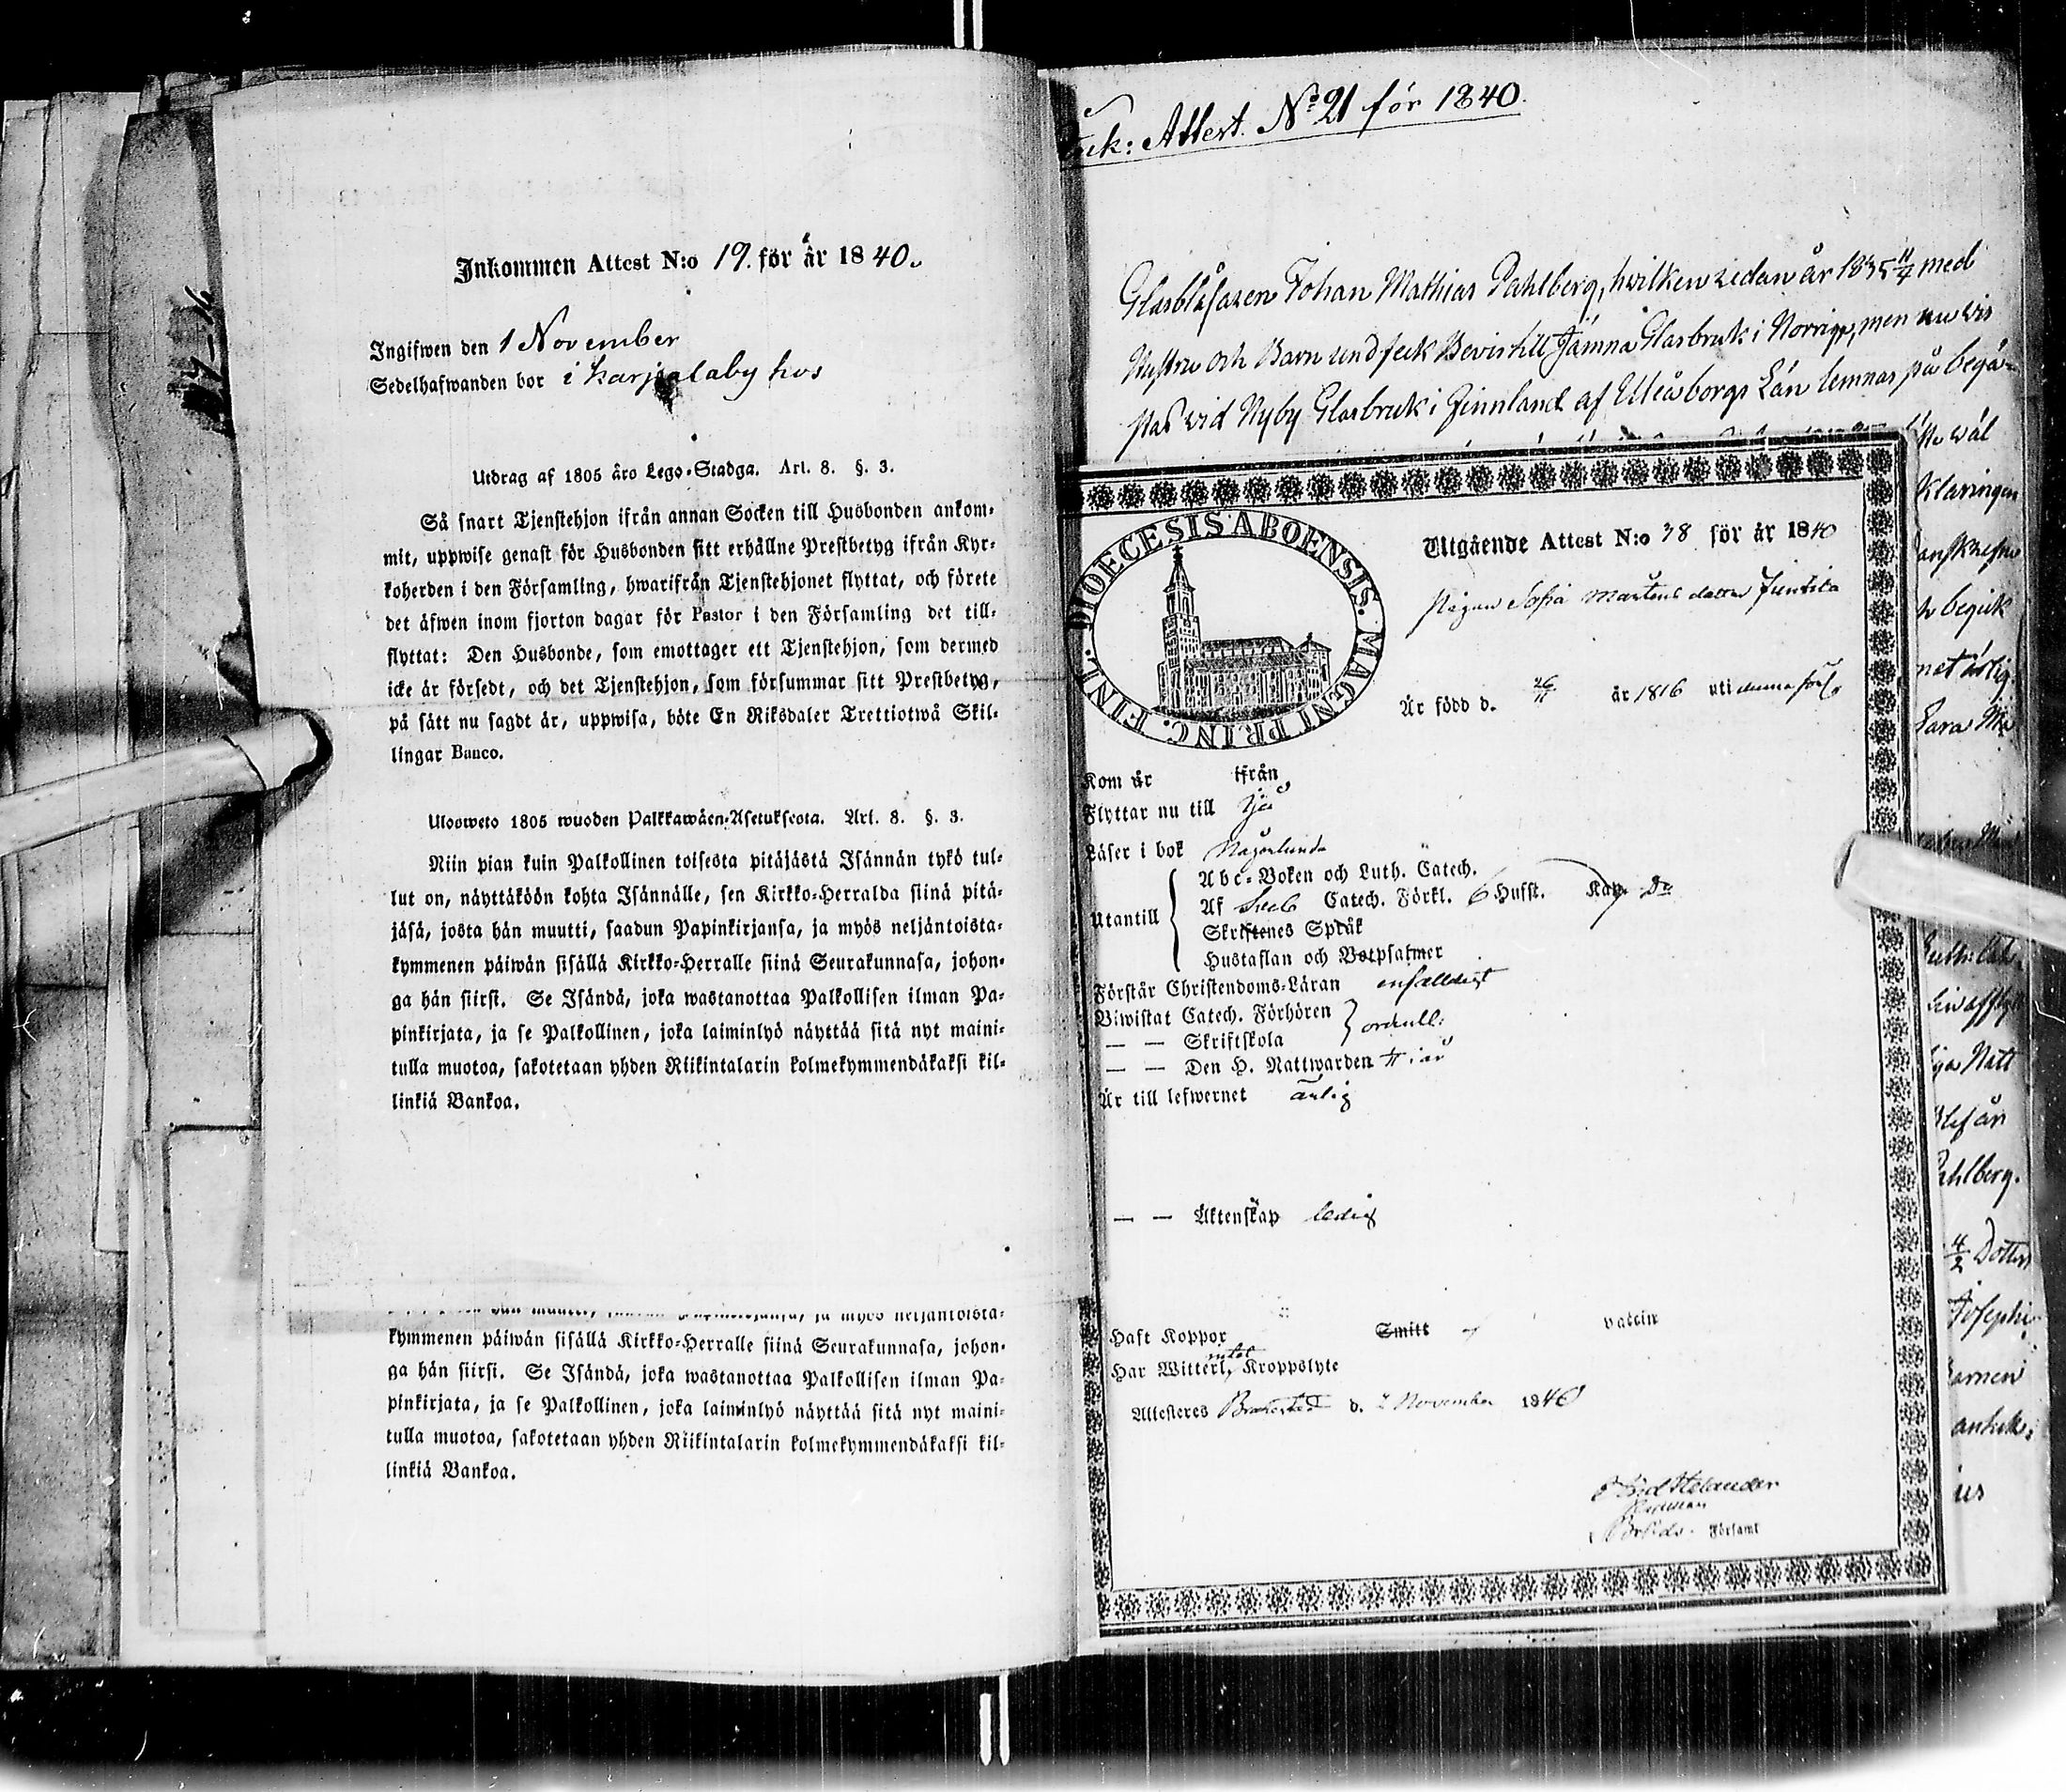 Inkommen Attest N:o 19. för år 1840.
Ingifwen den 1 November
Sedelhafwanden bor i Karjalaby hos
Utdrag af 1805 års Lego-Stadga. Art. 8. §. 3.
Så snart Tjenstehjon ifrån annan Socken till Husbonden ankom-
mit, uppwise genast för Husbonden sitt erhållne Prestbetyg ifrån Kyr-
koherden i den Församling, hwarifrån Tjenstehjonet flyttat, och förete
det äfwen inom fjorton dagar för Pastor i den Församling det till-
flyttat: Den Husbonde, som emottager ett Tjenstehjon, som dermed
icke är försedt, och det Tjenstehjon, som försummar sitt Prestbetyg,
på sätt nu sagdt är, uppwisa, böte En Riksdaler Trettiotwå Skil-
lingar Banco.
Ulosweto 1805 wuoden Palkkawäen-Asetuksesta. Art. 8. §. 3.
Niin pian kuin Palkollinen toisesta pitäjästä Isännän tykö tul-
lut on, näyttäköön kohta Isännälle, sen Kirkko-Herralda siinä pitä-
jäsä, josta hän muutti, saadun Papinkirjansa, ja myös neljäntoista-
kymmenen päiwän sisällä Kirkko-Herralle siinä Seurakunnasa, johon-
ga hän siirsi. Se Isändä, joka wastanottaa Palkollisen ilman Pa-
pinkirjata, ja se Palkollinen, joka laiminlyö näyttää sitä nyt maini-
tulla muotoa, sakotetaan yhden Riikintalarin kolmekymmendäkaksi kil-
linkiä Bankoa.
kymmenen päiwän sisällä Kirkko-Herralle siinä Seurakunnasa, johon-
ga hän siirsi. Se Isändä, joka wastanottaa Palkollisen ilman Pa-
pinkirjata, ja se Palkollinen, joka laiminlyö näyttää sitä nyt maini-
tulla muotoa, sakotetaan yhden Riikintalarin kolmekymmendäkaksi kil-
linkiä Bankoa.
Attest. No 21 för 1840.
Glasblåsaren Johan Mathias Dahlberg, hvilken sedan år 1835 11/4 med
Hustru och Barn undfick Bevis till Jämna Glasbruk i Norrige, men nu vis
stas vid Nyby Glasbruk i Finnland af Uleåborgs Län lemnas på begä-
DIOECESIS ABOENSIS. MAGNI PRINC. FINL.
Utgående Attest N:o 38 för år 1840
Pigan Sofia Mårtens dotter Juntila
Är född d. 26/11 år 1816 uti denna förs.
Kom år ifrån
Flyttar nu till Ijå
Läser i bok Någorlunda
Utantill
Abc-Boken och Luth. Catech.
Af Sveb Catech. Förkl. 6 Hufst. Kap. Do
Skriftenes Språk
Hustaflan och Botpsalmer
Förstår Christendoms-Läran enfaldigt
Biwistat Catech. Förhören
— — Skriftskola
— — Den H. Nattwarden i år
Är till lefwernet ärlig
— — Äktenskap ledig
Haft Koppor Smitt af Vaccin
Har Witterl. intet Kroppslyte
Attesteres Brahestad d. 2 November 1840
Församl